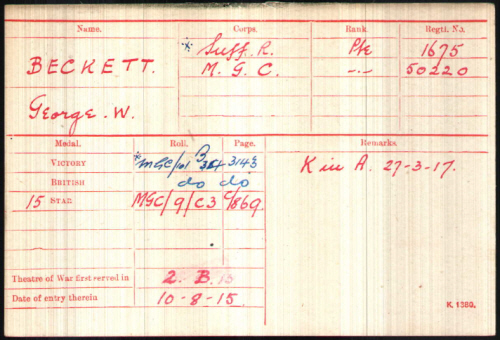 Name. Corps. Rank. Regtl. No.
BECKETT. * Suff. R. Pte 1675
M. G. C. -"- 50220
George. W.
Medal. Roll. Page. Remarks.
VICTORY *MGC/101 B 3143 K in A. 27-3-17.
BRITISH do do
15 STAR MGC/9/C3 869.
Theatre of War first served in 2. B.
Date of entry therein 10-8-15.
K. 1380.